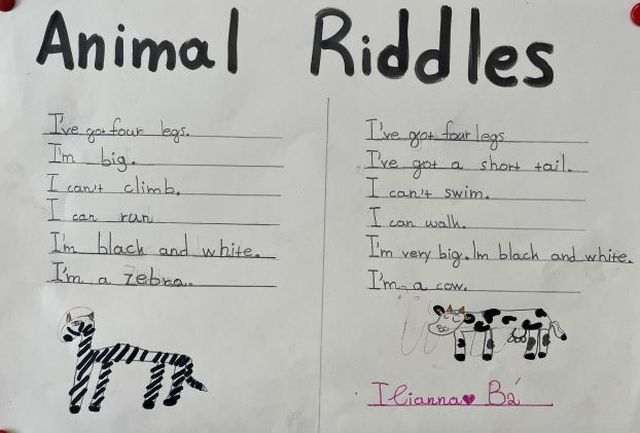 Animal Riddles
I've got four legs.
I'm big.
I can't climb.
I can run
I'm black and white.
I'm a zebra.
I've got four legs
I've got a short tail.
I can't swim.
I can walk.
I'm very big. Im black and white.
I'm a cow.
Ilianna Βα΄